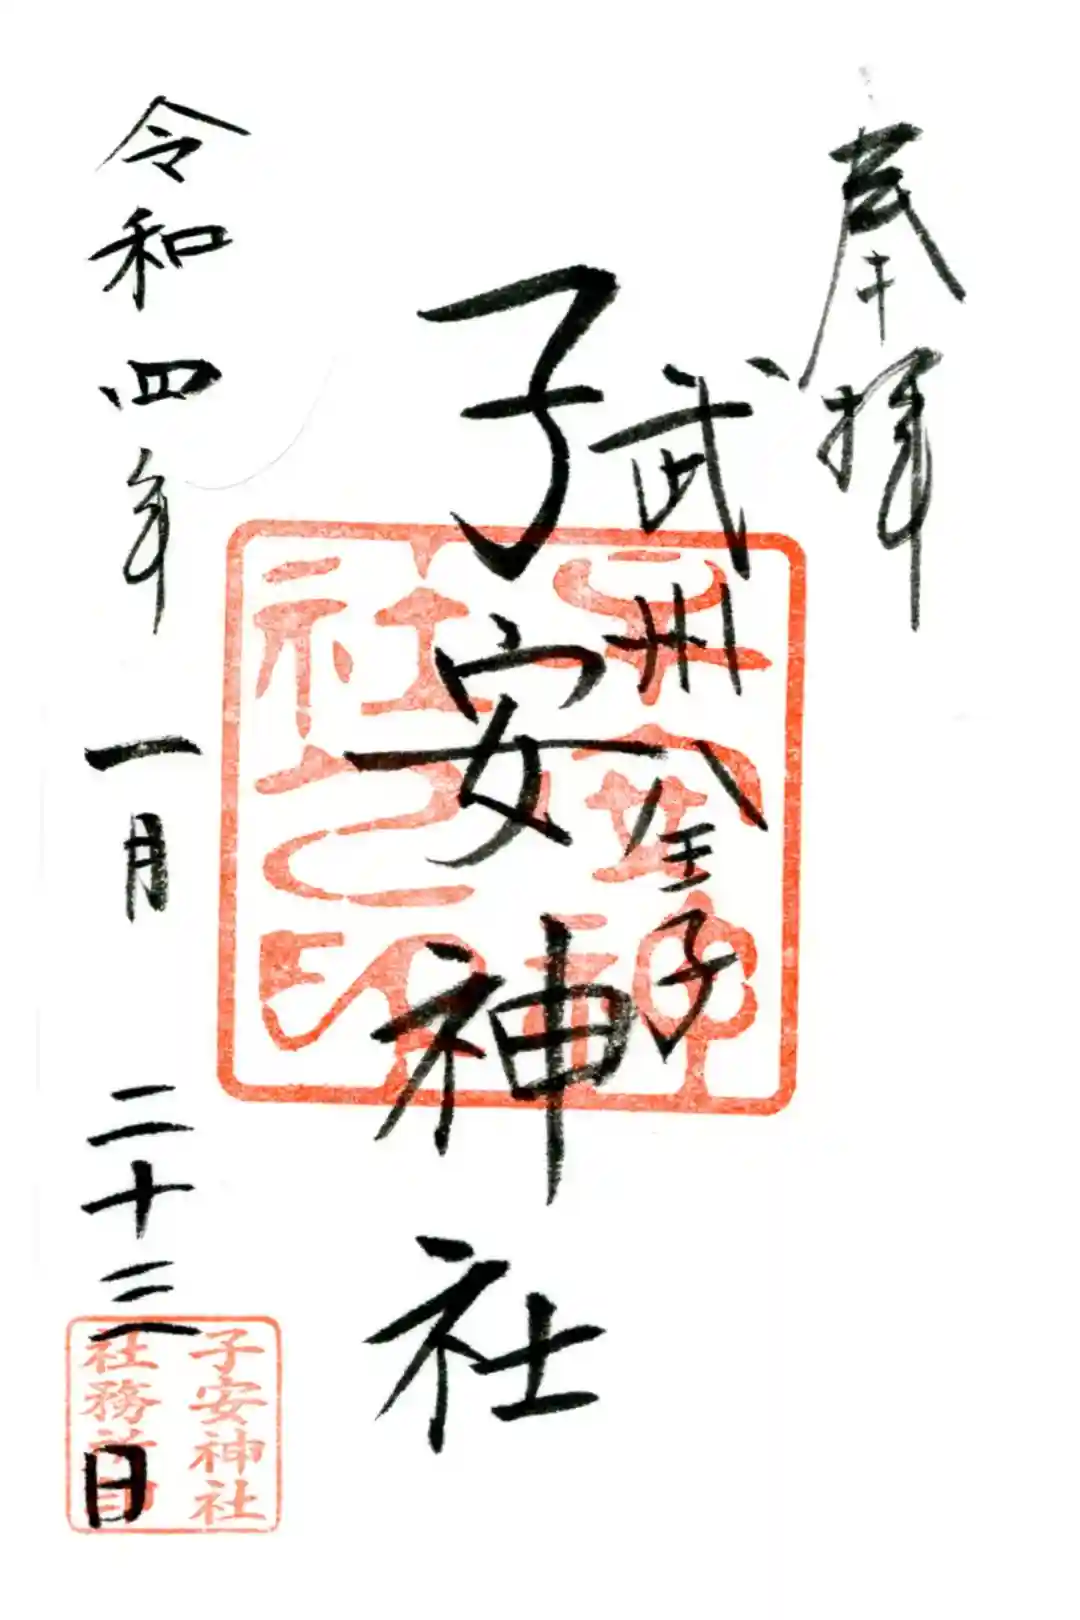 奉拝
武州八王子
子安神社
令和四年一月二十三日
子安神社之印
子安神社
社務所印